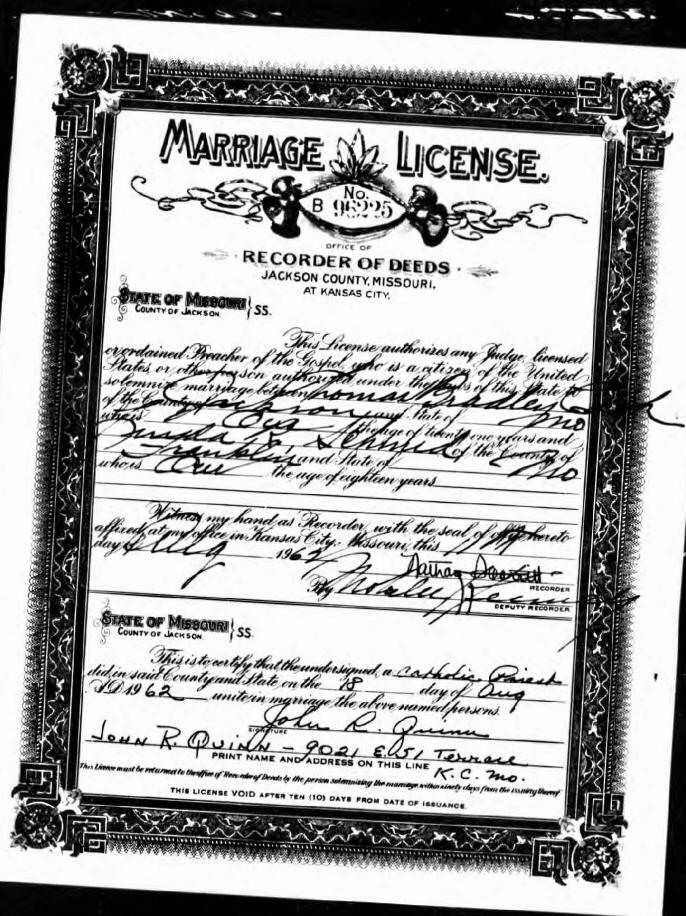 MARRIAGE LICENSE.
No.
B 96225
OFFICE OF
RECORDER OF DEEDS
JACKSON COUNTY, MISSOURI,
AT KANSAS CITY.
STATE OF MISSOURI
COUNTY OF JACKSON } SS.
This License authorizes any Judge, licensed
or ordained Preacher of the Gospel, who is a citizen of the United
States, or other person authorized under the laws of this State to
solemnize marriage between Thomas Bradley
of the County of Jackson and State of Mo
who is Over the age of twenty one years and
of the County of
Franklin and State of Mo
who is Over the age of eighteen years
Witness my hand as Recorder, with the seal of office hereto
affixed, at my office in Kansas City, Missouri, this
day of Aug 1962
RECORDER
By
DEPUTY RECORDER
STATE OF MISSOURI
COUNTY OF JACKSON } SS.
This is to certify that the undersigned, a Catholic Priest
did, in said County and State, on the 18 day of Aug
A.D. 1962 unite in marriage the above named persons.
John R. Quinn
SIGNATURE
JOHN R. QUINN - 9021 E. 51 Terrace
PRINT NAME AND ADDRESS ON THIS LINE K.C. Mo.
This License must be returned to the office of Recorder of Deeds by the person solemnizing the marriage within ninety days from the issuing thereof
THIS LICENSE VOID AFTER TEN (10) DAYS FROM DATE OF ISSUANCE.